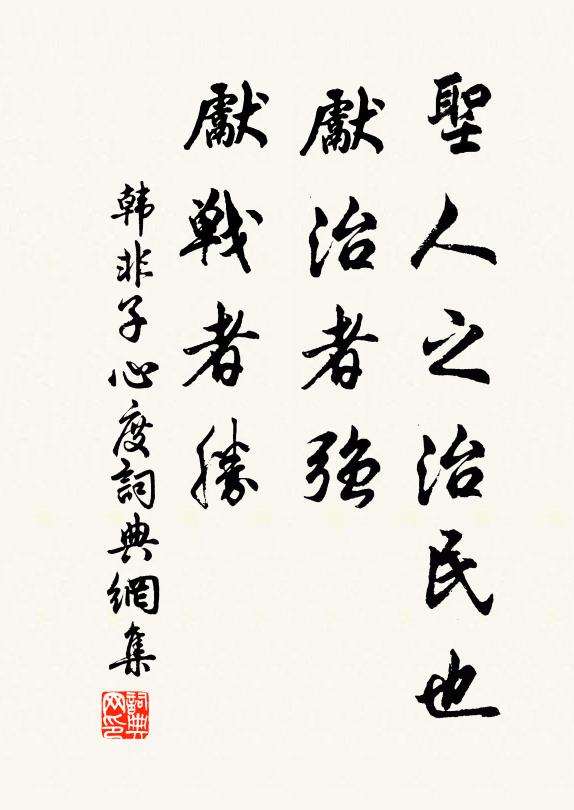 聖人之治民也
獻治者強
獻戦者勝
韩非子心度詞典網集
詞典网印